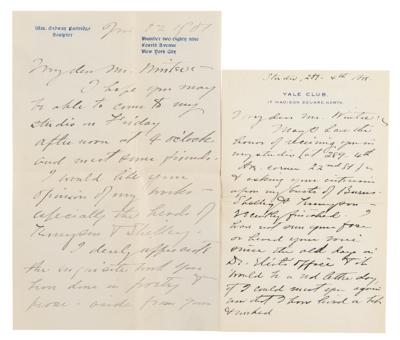 Wm. Ordway Partridge
Sculptor
Number two eighty nine
Fourth Avenue
New York City
My dear Mr. Winter:
I hope you may
be able to come to my
studio on Friday
afternoon at 4 o'clock
and meet some friends.
I would like your
opinion of my works
especially the heads of
Tennyson & Shelley.
I deeply appreciate
the exquisite work you
have done in poetry
prose - aside from your
Studio, 289. 4th Ave.
YALE CLUB,
17 MADISON SQUARE NORTH.
My dear Mr. Winter:
May I have the
honor of receiving you in
my studio (at 289. 4th
Ave corner 22 St.)
& asking your criticism
upon my busts of Burns
Shelley & Tennyson -
recently finished. I
have not seen your face
or heard your voice
since the old days in
Dr. office & it
would be a red letter day
if I could meet you again
and